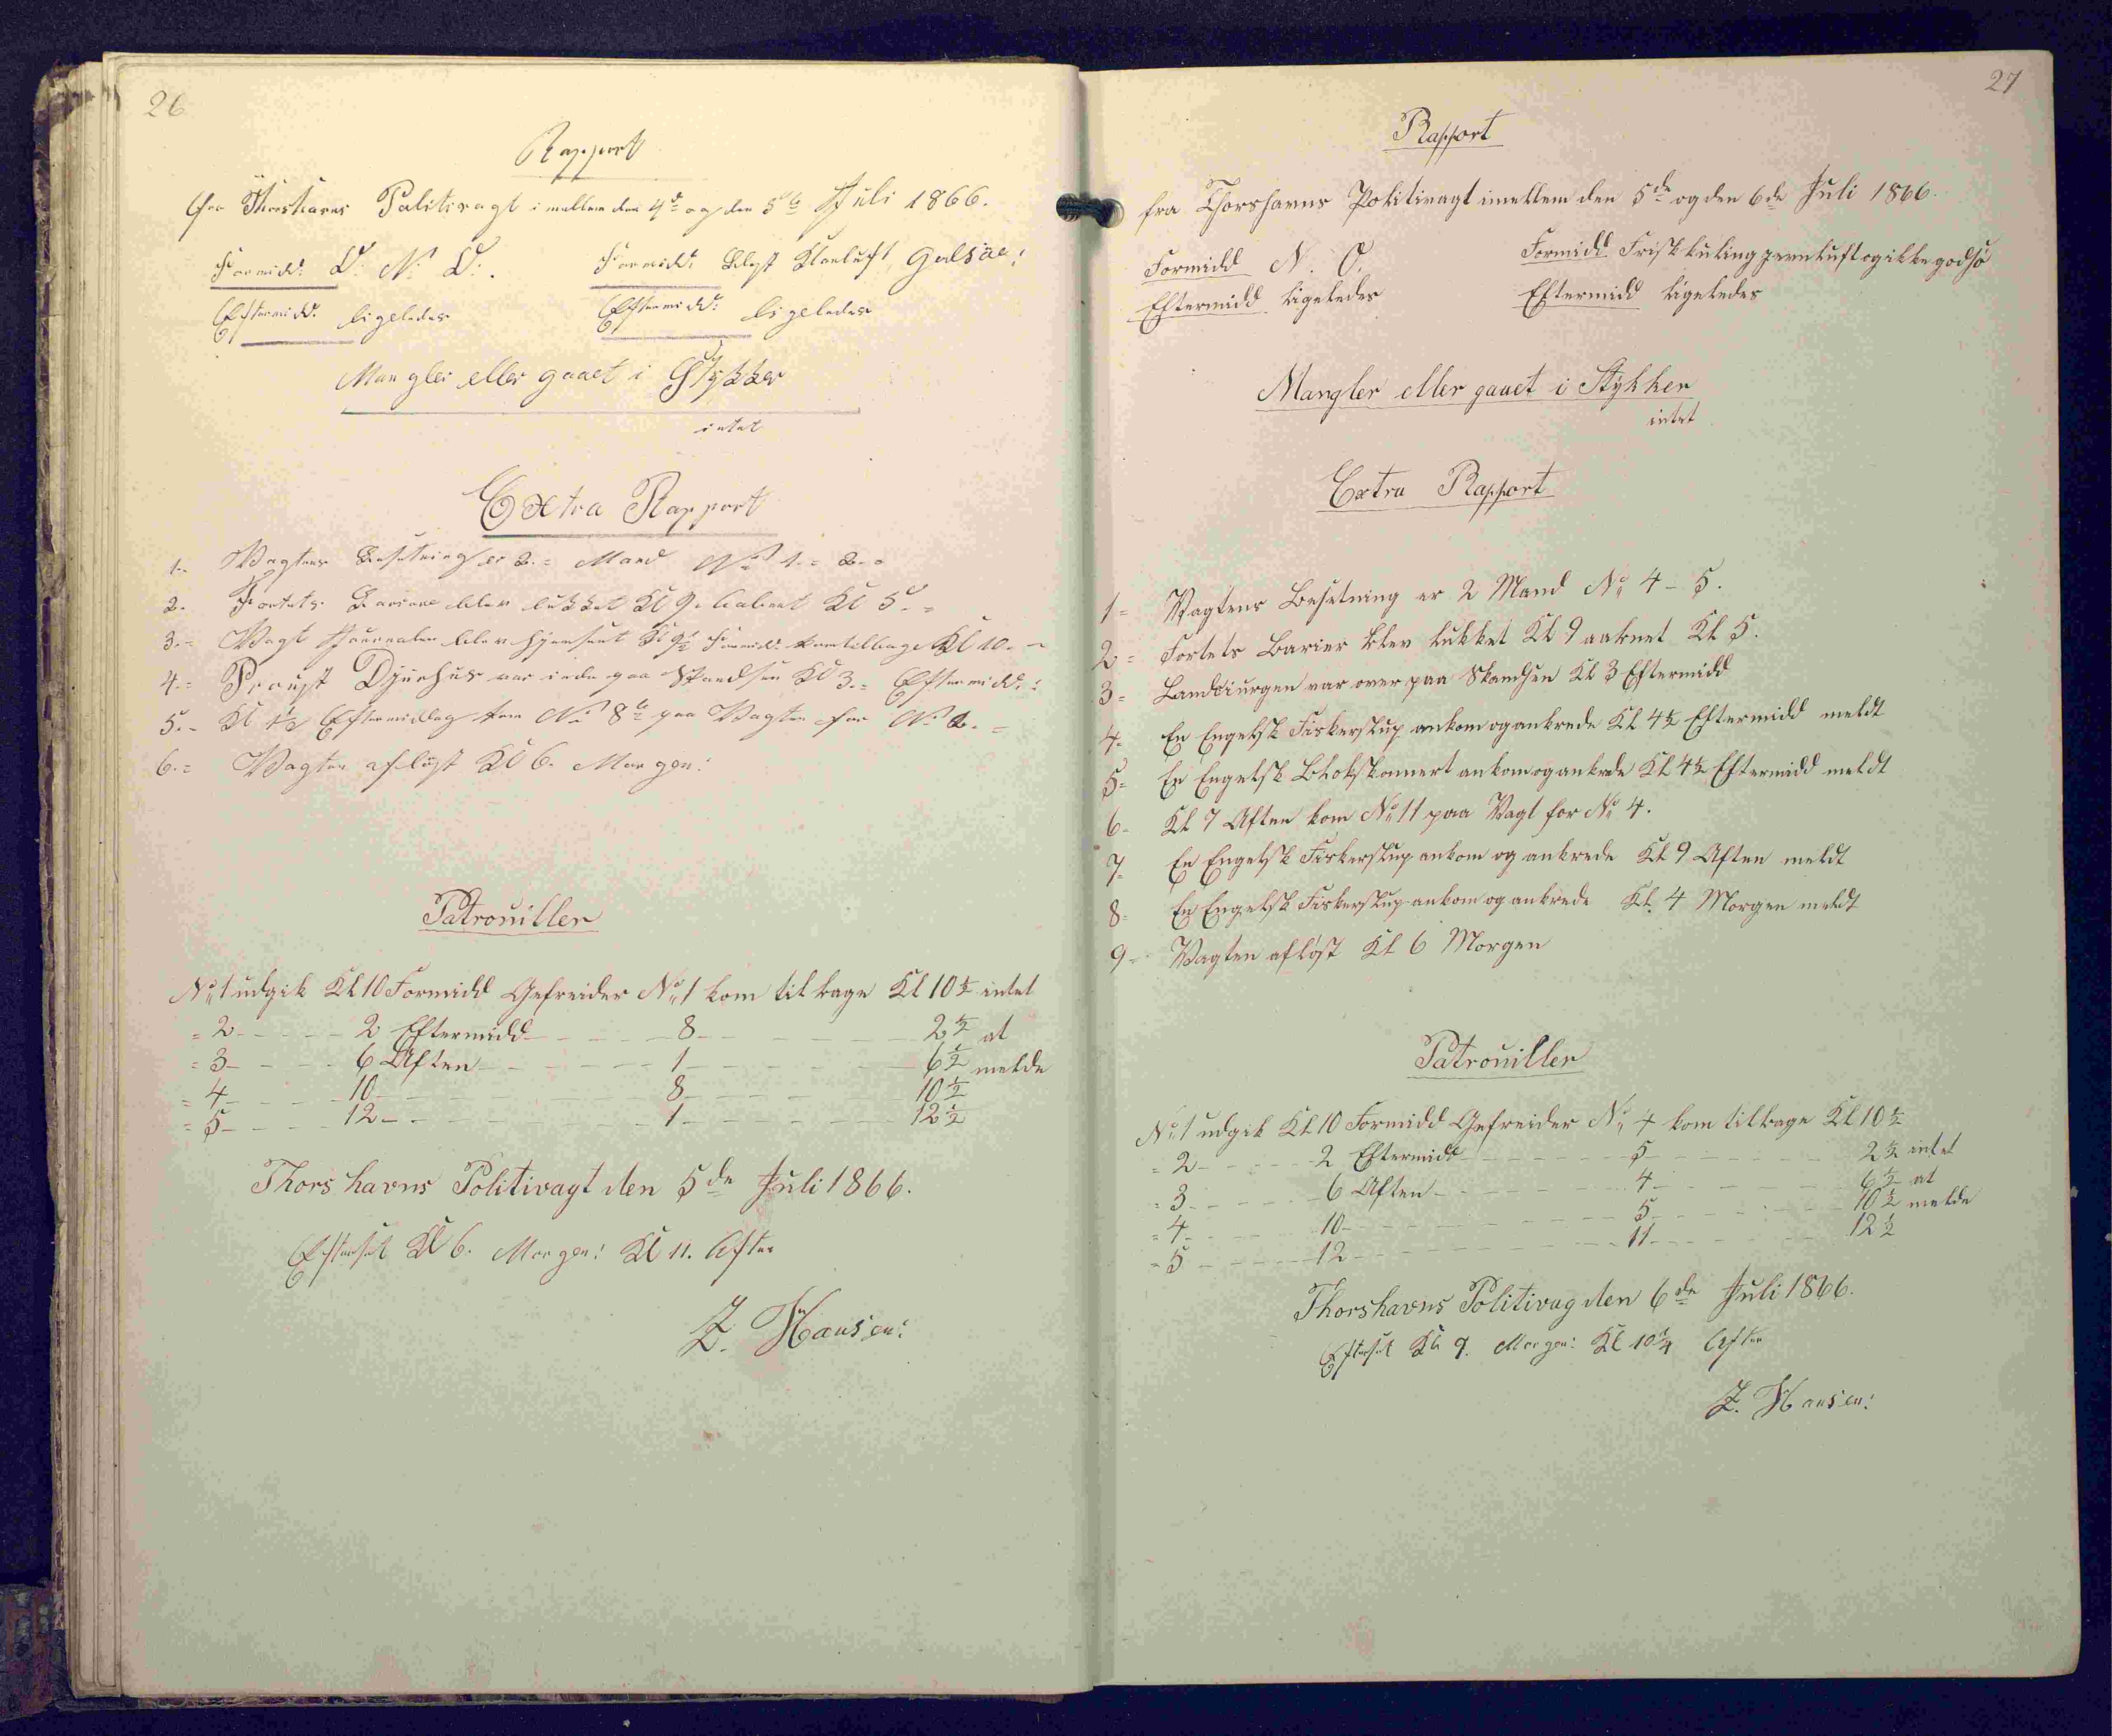 26
Rapport
fra Thorshavns Politivagt imellem den 4de og den 5te Juli 1866.
Formidd: O: N: O:. Formidd: Klarluft, Godsöe:
Eftermidd: ligeledes Eftermidd: ligeledes
Mangler eller gaaet i Stykker
intet
Extra Rapport
1.- Vagtens Besetning er 2.= Mand No 1.= 2.=
2.- Fortets Bariere blev lukket Kl 9. aabnet Kl 5.=
3.= Vagt Journalen blev hjemsent Kl 9½ Formidd: kom tilbage Kl 10.-
4.= Proust Djurhus var inde paa Skandsen Kl 3.= Eftermidd:
5.- Kl ½ Eftermiddag kom No 8te paa Vagten for No 2.=
6.= Vagten aflöst Kl 6. Morgen:
Patrouiller
No 1 udgik Kl 10 Formidd Gefreider No 1 kom tilbage Kl 10½ intet
= 2 - - - - 2 Eftermidd - - - 8 - - - 2½ at
= 3 - - - - 6 Aften - - - 1 - - - 6½ melde
= 4 - - - - 10 - - - 8 - - - 10½
= 5 - - - - 12 - - - 1 - - - 12½
Thorshavns Politivagt den 5de Juli 1866.
Efterset Kl 6. Morgen: Kl 11. Aften
Z. Hansen:
27
Rapport
fra Thorshavns Politivagt imellem den 5de og den 6de Juli 1866.
Formidd N. O. Formidd Frisk kuling luft og ikke god sö
Eftermidd ligeledes Eftermidd ligeledes
Mangler eller gaaet i Stykker
intet
Extra Rapport
1= Vagtens Besetning er 2 Mand No 4 - 5.
2= Fortets Barier blev lukket Kl 9 aabnet Kl 5.
3= var over paa Skandsen Kl 3 Eftermidd
4- En Engelsk Fiskerslup ankom og ankrede Kl 4½ Eftermidd meldt
5= En Engelsk ankom og ankrede Kl 4½ Eftermidd meldt
6- Kl 7 Aften kom No 11 paa Vagt for No 4.
7- En Engelsk Fiskerslup ankom og ankrede Kl 9 Aften meldt
8- En Engelsk Fiskerslup ankom og ankrede Kl. 4 Morgen meldt
9- Vagten aflöst Kl 6 Morgen
Patrouiller
No 1 udgik Kl 10 Formidd Gefreider No 4 kom tilbage Kl 10½
= 2 - - - - 2 Eftermidd - - - 5 - - - 2½ intet
= 3 - - - - 6 Aften - - - 4 - - - 6½ at
= 4 - - - - 10 - - - 5 - - - 10½ melde
= 5 - - - - 12 - - - 11 - - - 12½
Thorshavns Politivag den 6de Juli 1866.
Efterset Kl 9. Morgen: Kl 10¼ Aften
Z. Hansen: